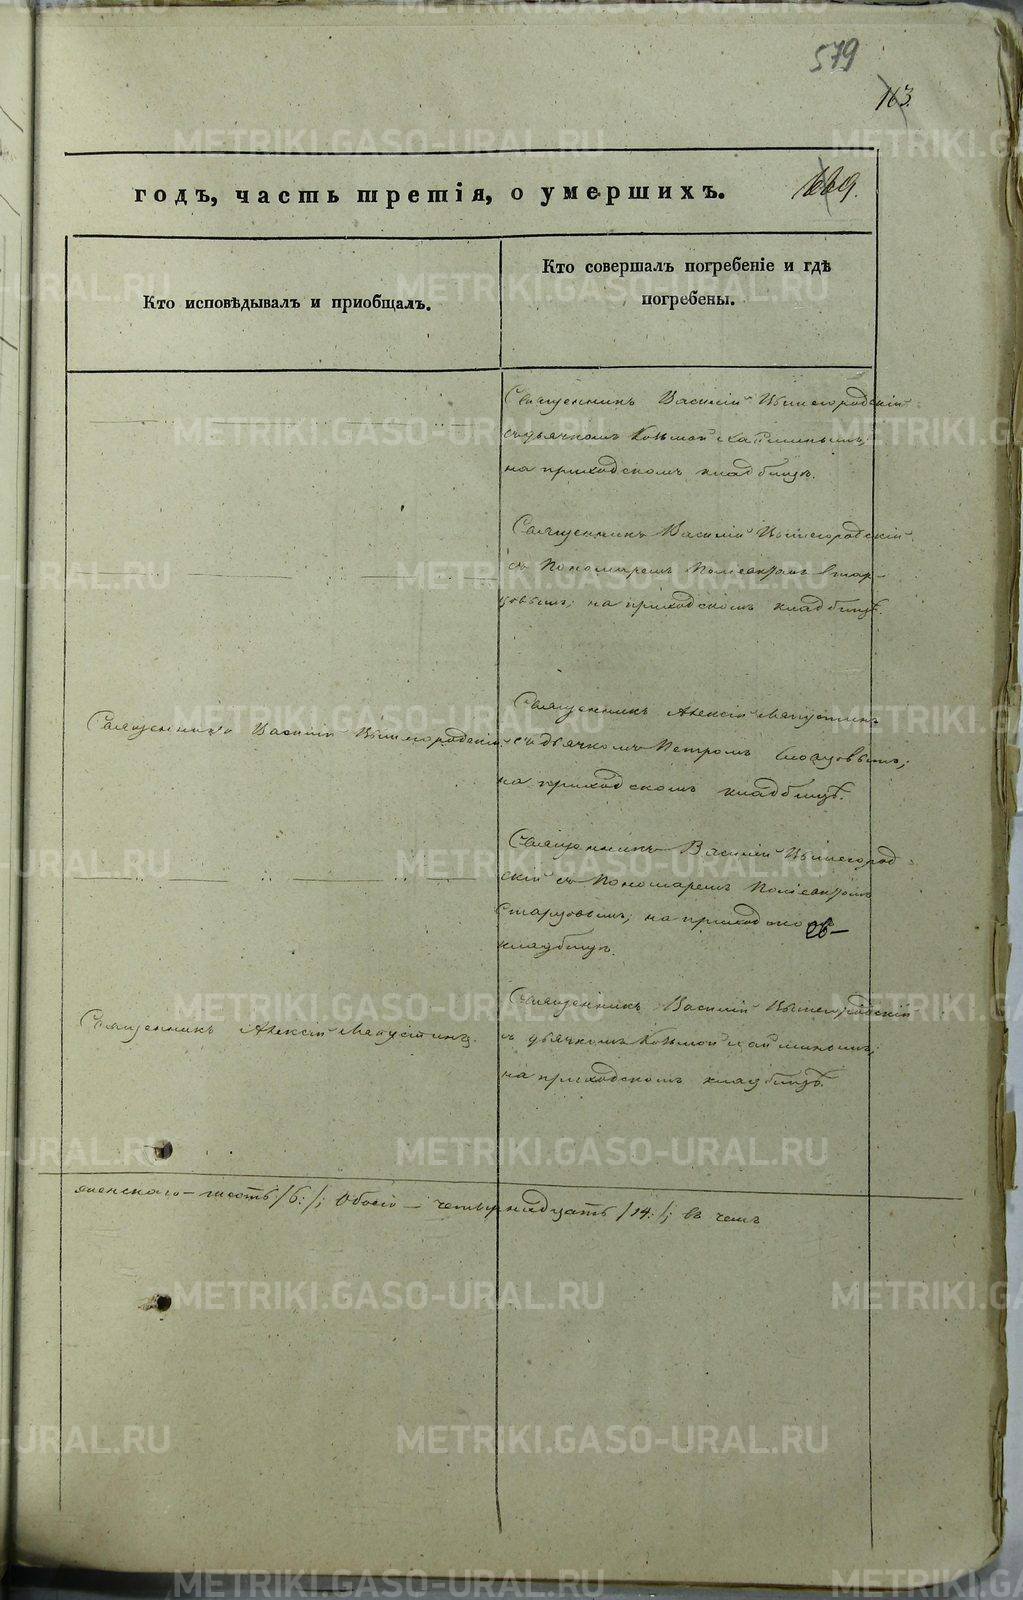 579
163.
669.
годъ, часть третія, о умершихъ.
Кто исповѣдывалъ и приобщалъ.
Кто совершалъ погребеніе и гдѣ
погребены.
Священникъ Василій Вышегородскій
съ дьячкомъ Козьмой
на приходскомъ кладбищѣ.
Священникъ Василій Вышегородскій
съ Пономаремъ Поліевктомъ Стар-
цовымъ; на приходскомъ кладбищѣ.
Священникъ Василій Вышегородскій
Священникъ Алексій
съ дьячкомъ Петромъ
на приходскомъ кладбищѣ.
Священникъ Василій Вышегород
скій съ Пономаремъ Поліевктомъ
Старцовымъ; на приходскомъ
кладбищѣ.
26
Священникъ Алексій
Священникъ Василій Вышегородскій
съ дьячкомъ Козьмой
на приходскомъ кладбищѣ.
женскаго – шесть /6:/; Обоего – четырнадцать /14:/; въ чемъ
METRIKI.GASO-URAL.RU